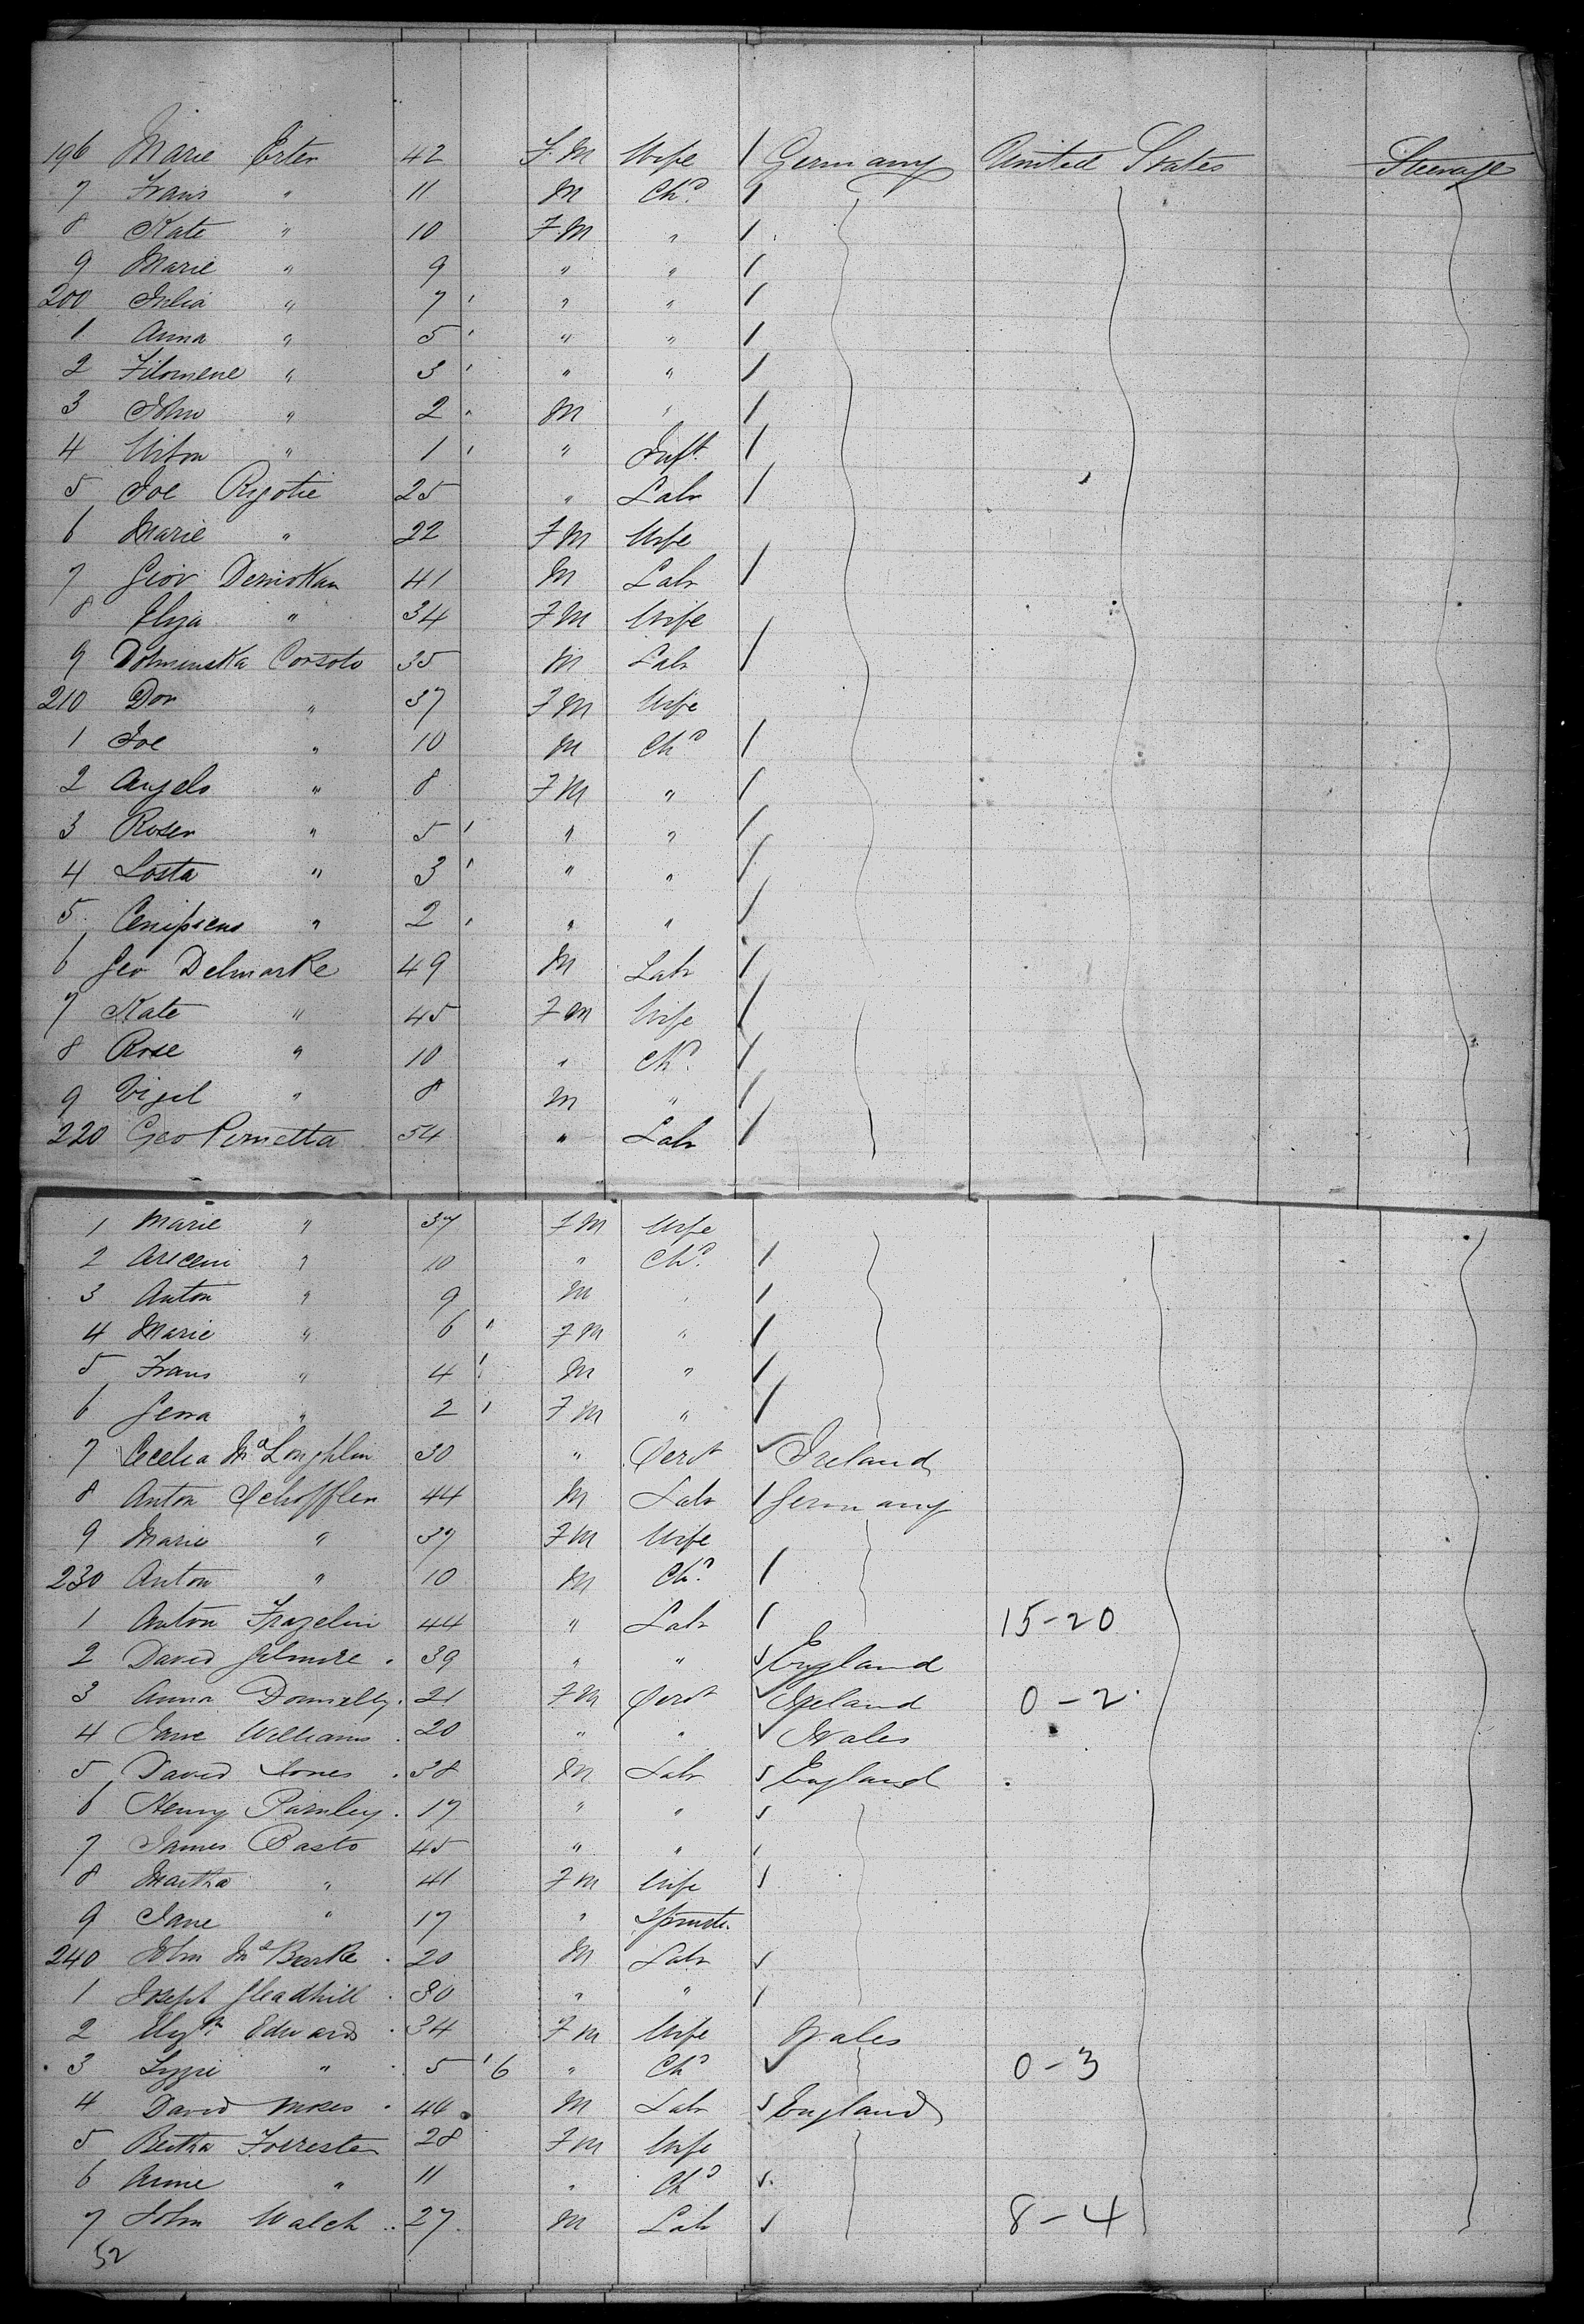 196 Marie Erter 42 F.M Wife / Germany United States Steerage
7 Frans " 11 M Chd /
8 Kate " 10 F.M " /
9 Marie " 9 " " /
200 Julia " 7 ' " " /
1 Anna " 5 ' " " /
2 Filomene " 3 ' " " /
3 John " 2 ' M " /
4 " 1 ' " Inft /
5 Joe Rigotie 25 " Labr /
6 Marie " 22 F M Wife
7 Giov 41 M Labr /
8 Eliza " 34 F M Wife
9 Dominska Corsolo 35 M Labr /
210 Dor " 37 F M Wife
1 Joe " 10 M Chd /
2 Angelo " 8 F M " /
3 Roser " 5 ' " " /
4 Losta " 3 ' " " /
5 " 2 ' " " /
6 Geo Delmarke 49 M Labr /
7 Kate " 45 F M Wife /
8 Rose " 10 " Chd /
9 Vigil " 8 M " /
220 Geo Pernetta 54 " Labr /
1 Marie " 37 F M Wife
2 " 10 " Chd /
3 Anton " 9 M " /
4 Marie " 6 " F M " /
5 Frans " 4 ' M " /
6 Gena " 2 ' F M " /
7 Cecelia Mc Loughlin 30 " Servt ✓ Ireland
8 Anton Schofflen 44 M Labr / Germany
9 Marie " 37 F M Wife
230 Anton " 10 M Chd /
1 Anton Frazelini 44 " Labr / 15-20
2 David Gilmore 39 " " ✓ England
3 Anna Donnelly 21 F M Servt ✓ Ireland 0-2
4 Jane Williams 20 " " ✓ Wales
5 David Jones 38 M Labr ✓ England
6 Henry Parnley 17 " " ✓
7 James Pasto 45 " " /
8 Martha " 41 F M Wife ✓
9 Jane " 17 " Spinster
240 John Mc Burke 20 M Labr ✓
1 Joseph Gleadhill 30 " " /
2 Elizth Edwards 34 F M Wife Wales
3 Lizzie " 5 ' 6 " Chd ✓ 0-3
4 David Mines 40 M Labr ✓ England
5 Bertha Forrester 28 F M Wife
6 Annie " 11 " Chd ✓
7 John Walch 27 M Labr ✓ 8-4
52